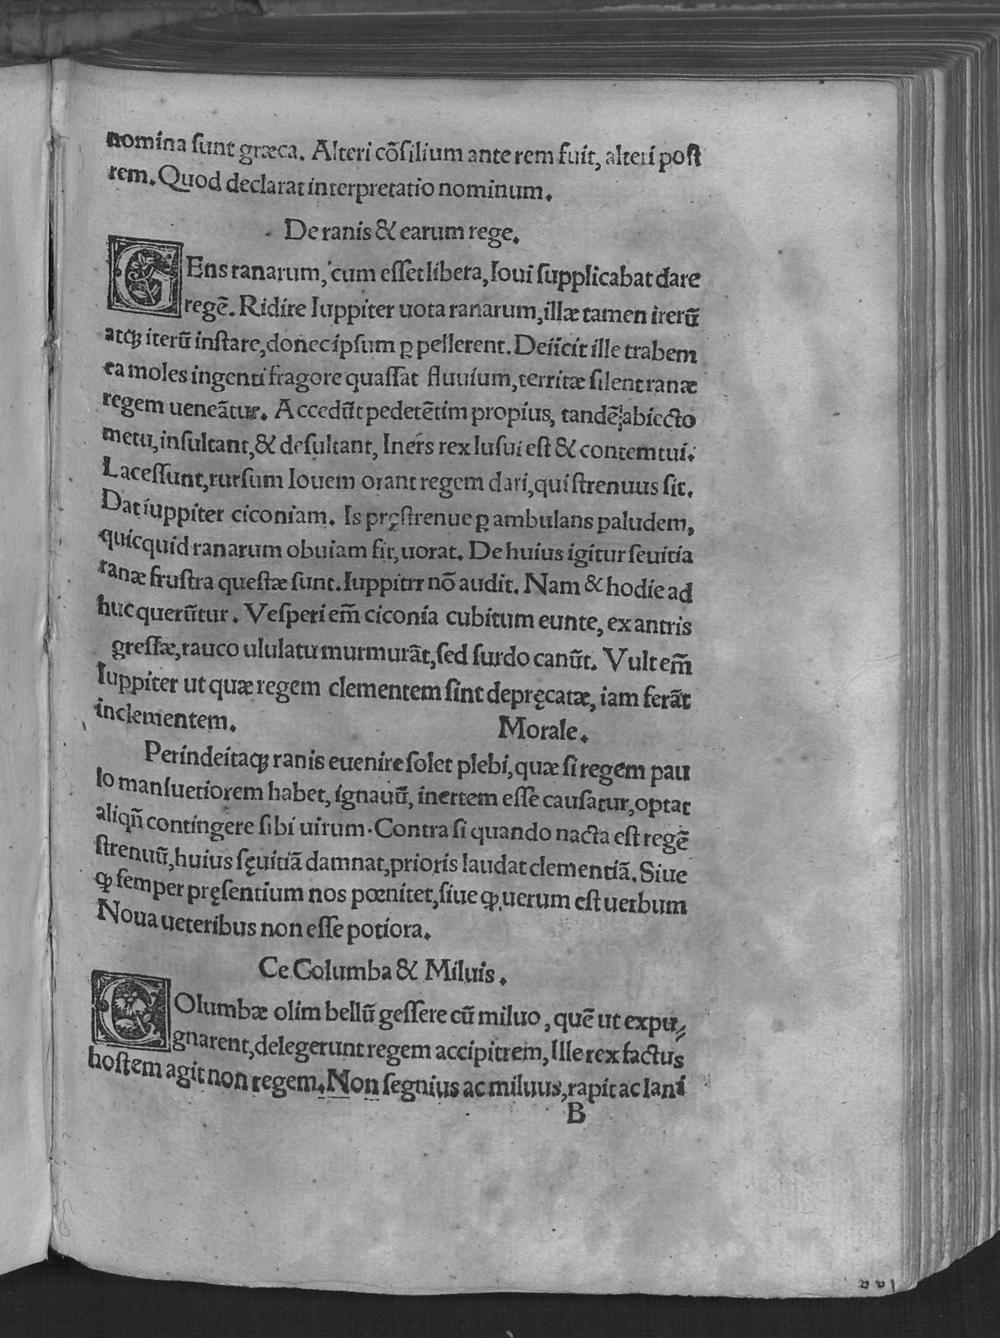 nomina ſunt græca. Alteri cõſilium ante rem fuit, alteri poſt
rem. Quod declarat interpretatio nominum.
De ranis & earum rege.
GEns ranarum, cum eſſet libera, Ioui ſupplicabat dare
regẽ. Ridire Iuppiter uota ranarum, illæ tamen iterũ
atꝗ iterũ inſtare, donec ipſum ꝑ pellerent. Deiicit ille trabem
ea moles ingenti fragore quaſſat fluuium, territæ ſilent ranæ
regem ueneãtur. Accedũt pedetẽtim propius, tandẽ abiecto
metu, inſultant, & deſultant, Iners rex luſui eſt & contemtui.
Laceſſunt, rurſum Iouem orant regem dari, qui ſtrenuus ſit.
Dat iuppiter ciconiam. Is pręſtrenue ꝑ ambulans paludem,
quicquid ranarum obuiam fit, uorat. De huius igitur ſeuitia
ranæ fruſtra queſtæ ſunt. Iuppitrr nõ audit. Nam & hodie ad
huc querũtur. Veſperi em̃ ciconia cubitum eunte, ex antris
greſſæ, rauco ululatu murmurãt, ſed ſurdo canũt. Vult em̃
Iuppiter ut quæ regem clementem ſint depręcatæ, iam ferãt
inclementem. Morale.
Perinde itaꝗ ranis euenire ſolet plebi, quæ ſi regem pau
lo manſuetiorem habet, ignauũ, inertem eſſe cauſatur, optat
aliqñ contingere ſibi uirum. Contra ſi quando nacta eſt regẽ
ſtrenuũ, huius ſęuitiã damnat, prioris laudat clementiã. Siue
ꝙ ſemper pręſentium nos pœnitet, ſiue ꝙ uerum eſt uerbum
Noua ueteribus non eſſe potiora.
Ce Columba & Miluis.
COlumbæ olim bellũ geſſere cũ miluo, quẽ ut expu⸗
gnarent, delegerunt regem accipitrem, Ille rex factus
hoſtem agit non regem. Non ſegnius ac miluus, rapit ac lani
B